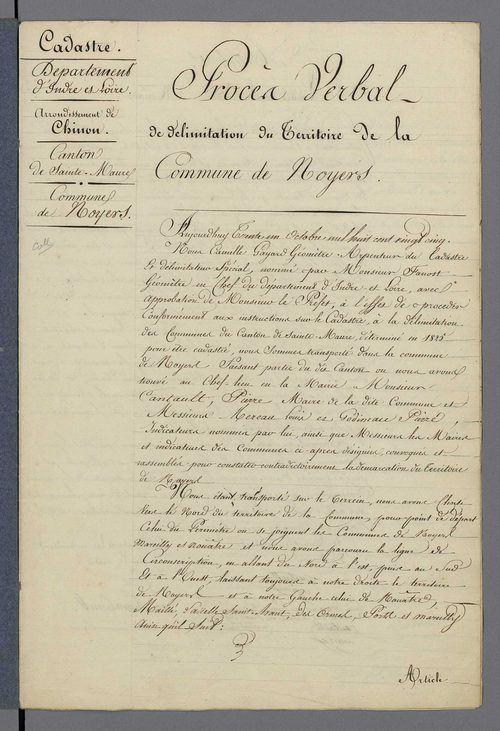 Cadastre.
Département
d'Indre et Loire.
Arrondissement de
Chinon.
Canton
de Sainte-Maure
Commune
de Noyers.
Procès Verbal
de délimitation du Territoire de la
Commune de Noyers.
Aujourdhuy Trente un Octobre mil huit cent vingt cinq.
Nous Camille Gayard Géomètre Arpenteur du Cadastre
Et délimitateur Spécial, nommé par Monsieur
Géomètre en Chef du département d'Indre et Loire, avec
approbation de Monsieur le Préfet, à l'effet de procéder
Conformément aux instructions sur le Cadastre, à la délimitation
des Communes du Canton de Sainte-Maure, déterminé en 1825
pour être cadastré, nous sommes transporté dans la commune
de Noyers faisant partie du dit Canton ou nous avons
trouvé au Chef-lieu en la Mairie Monsieur
Pierre Maire de la dite Commune et
Messieurs Moreau Louis et Godineau Pierre,
Indicateurs nommés par lui, ainsi que Messieurs les Maires
et indicateurs des Communes ci après désignés, convoqués et
rassemblés pour constater contradictoirement la démarcation du territoire
de Noyers
Nous étant transporté sur le terrein, nous avons choisi
vers le Nord du territoire de la Commune, pour point de départ
Celui du Périmètre ou se joignent les Communes de Noyers
Marcilly et Nouâtre et nous avons parcouru la ligne de
Circonscription, en allant du Nord à l'est, puis au Sud
Et à l'Ouest, laissant toujours à notre droite le territoire
de Noyers et à notre Gauche celui de Nouâtre,
Maillé, Saint-Avant, des Ormes, Ports et Marcilly
Ainsi qu'il Suit:
Article.